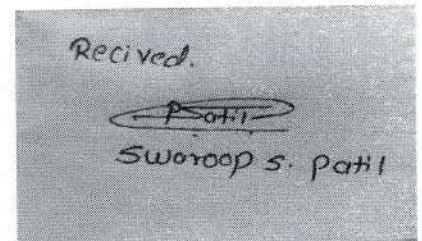 Recived.
Patil
Swaroop s. patil